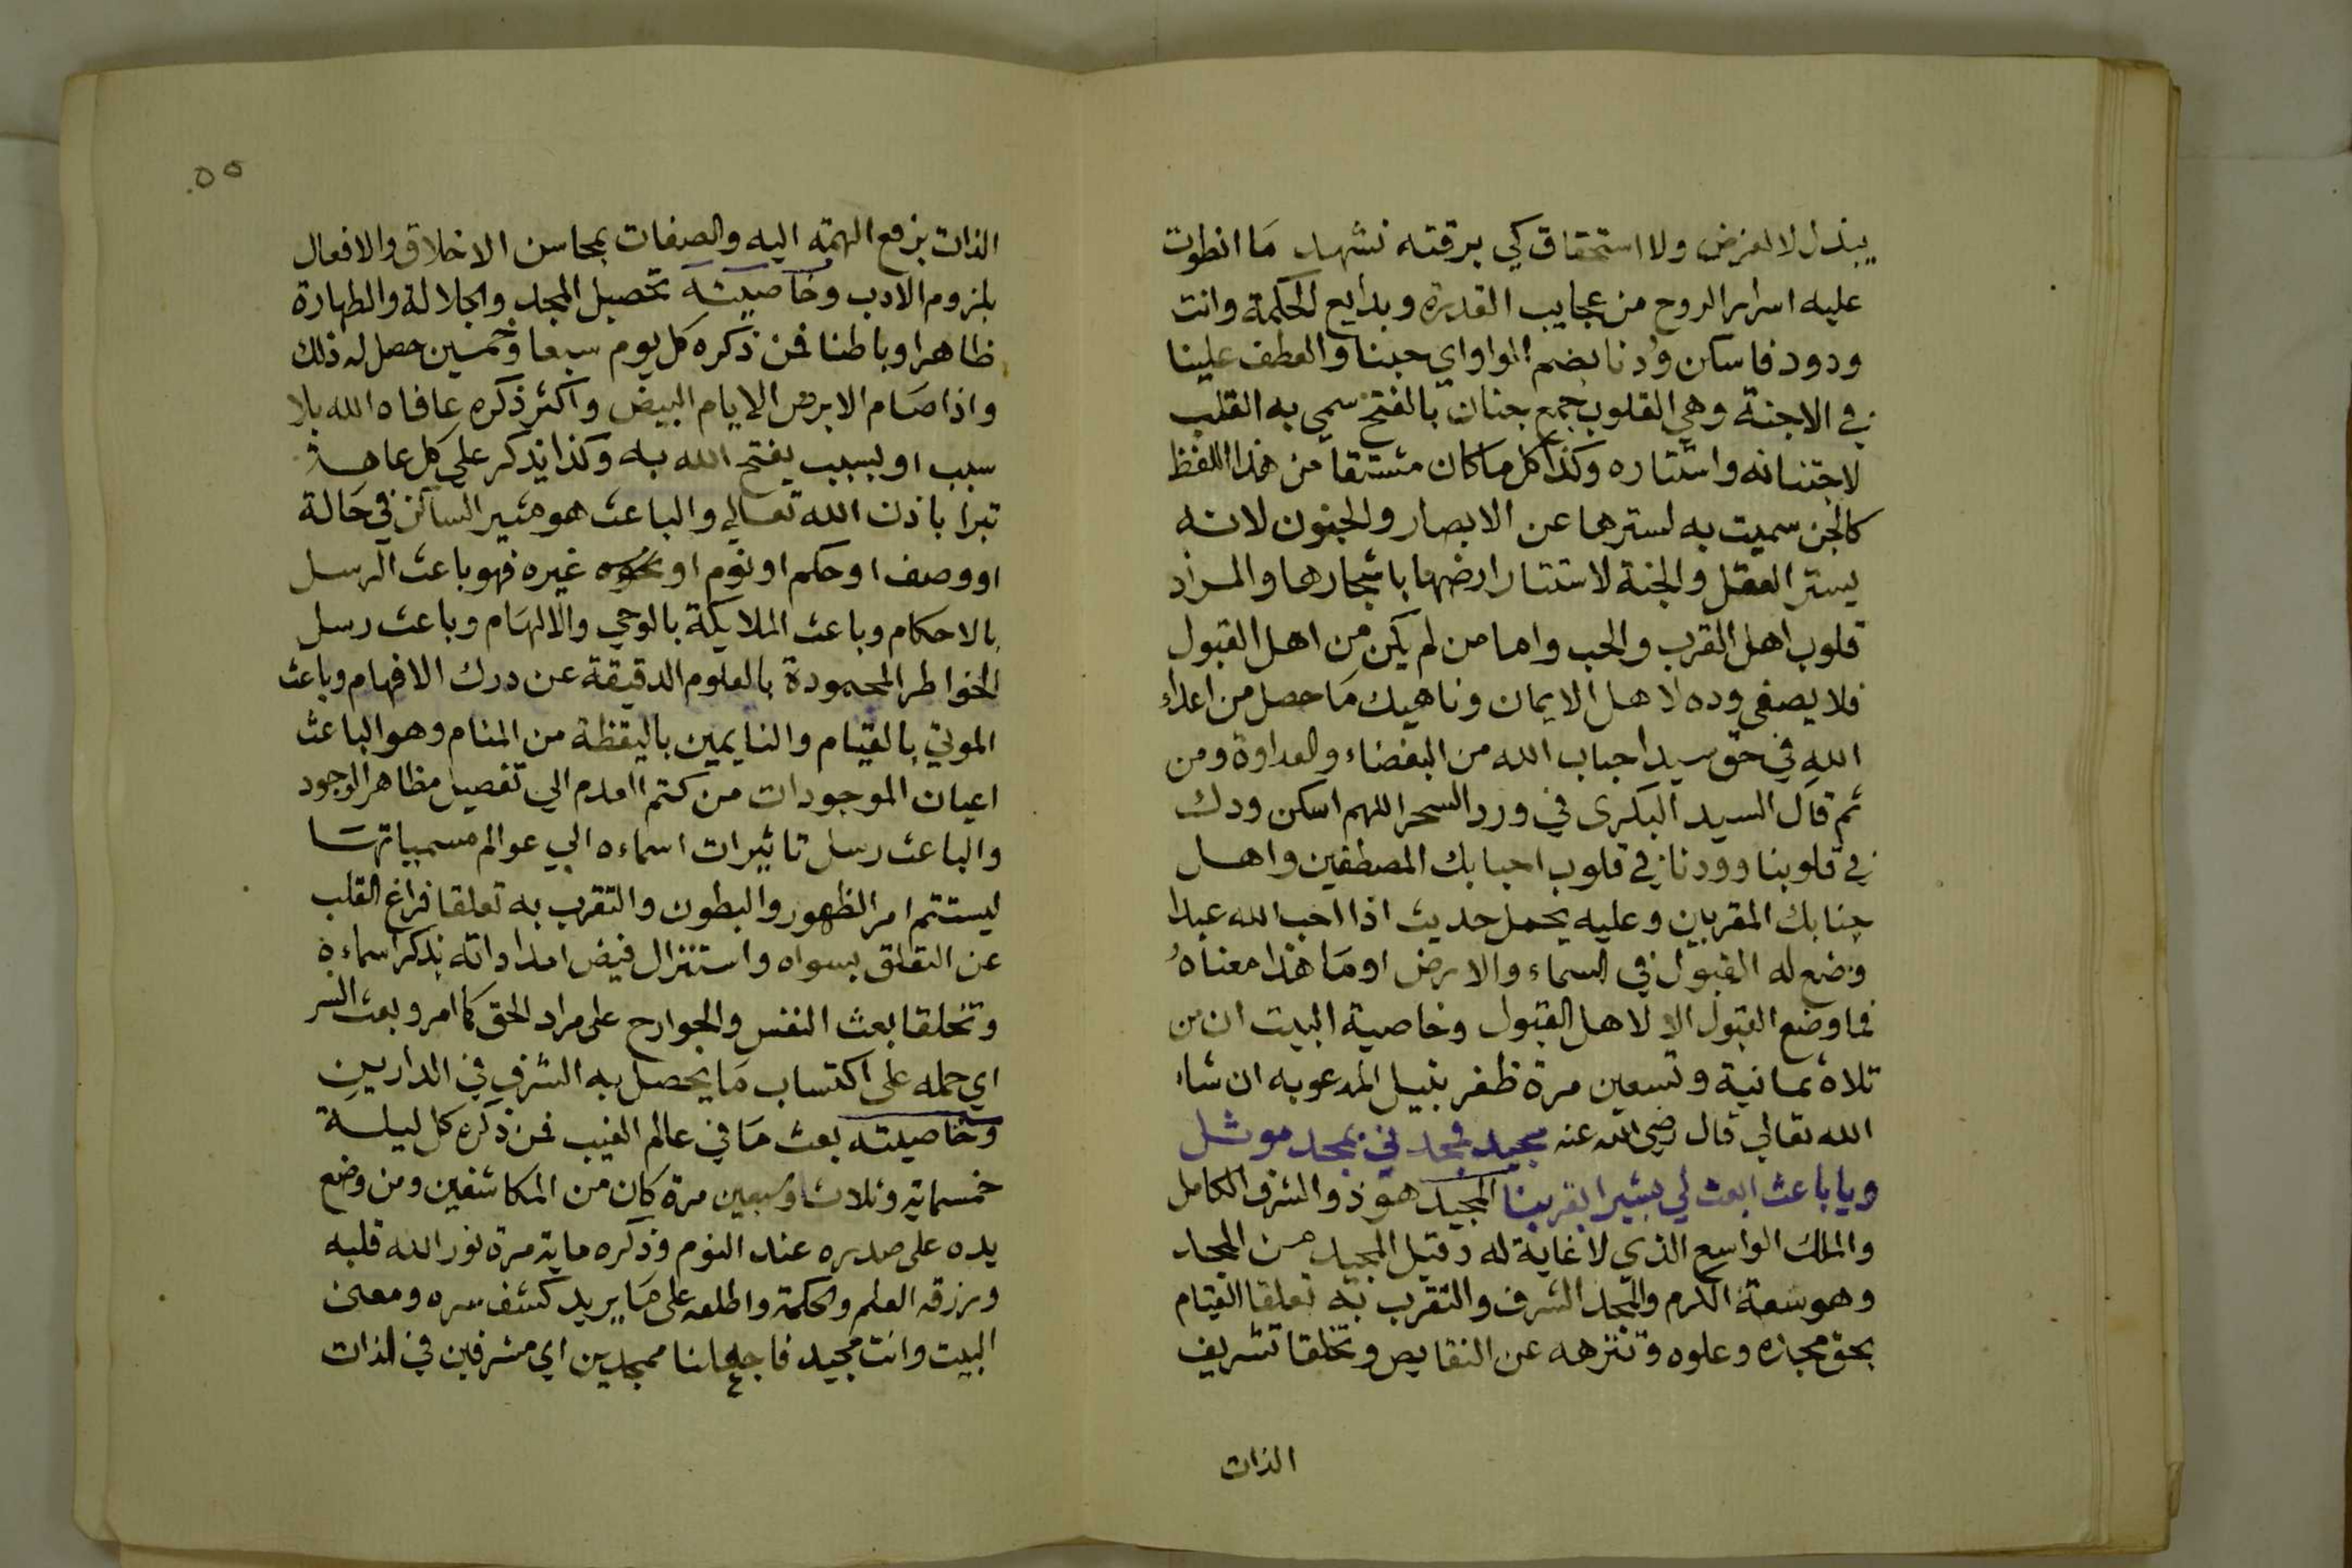 يبذل لا لغرض ولا استحقاق كي برقته نشهد مَا انطوت
عليه اسرار الروح من عجايب القدرة وبدايع الحكمة وانت
ودود فاسكن وُدنا بضم الواو اي حبنا والعطف علينا
في الاجنة وهي القلوب جمع جنان بالفتح سمي به القلب
لاجتنانه واستتاره وكذا كل ما كان مشتقا من هذا اللفظ
كالجن سميت به لسترها عن الابصار والجنون لانه
يستر العقل والجنة لاستتار ارضها باشجارها والمراد
قلوب اهل القرب والحب واما من لم يكن من اهل القبول
فلا يصفي وده لاهل الايمان وناهيك مَا حصل من اعداء
الله في حق سيد احباب الله من البغضاء والعداوة ومن
ثم قال السيد البكرى في ورد السحر اللهم اسكن ودك
في قلوبنا وودنا في قلوب احبابك المصطفين واهل
جنابك المقربين وعليه يحمل حديث اذا احب الله عبدا
وضع له القبول في السماء والارض او مَا هذا معناهُ
فما وضع القبول الا لاهل القبول وخاصية البيت ان من
تلاه ثمانية وتسعين مرة ظفر بنيل المدعو به ان شاء
الله تعالي قال رضي الله عنه مجيد فمجدني بمجد موثل
ويا باعث ابعث لي بشيرا بقربنا المجيد هو ذو الشرف الكامل
والملك الواسع الذي لا غاية له وقيل المجيد من المجد
وهو سعة الكرم والمجد الشرف والتقرب به تعلقا القيام
بحق مجده وعلوه وتنزهه عن النقايص وتخلقا تشريف
الذات
٥٥
الذات برفع الهمة اليه والصفات بمحاسن الاخلاق والافعال
بلزوم الادب وخاصيته تحصيل المجد والجلالة والطهارة
ظاهرا وباطنا فمن ذكره كل يوم سبعا وخمسين حصل له ذلك
واذا صَام الابرص الايام البيض واكثر ذكره عافاه الله بلا
سبب او بسبب يفتح الله به وكذا يذكر على كل عاهة
تبرا باذن الله تعالي والباعث هو مثير الساكن في حَالة
او وصف او حكم او نوم او نحوه غيره فهو باعث الرسل
بالاحكام وباعث الملايكة بالوحي والالهَام وباعث رسل
الخواطر المحمودة بالعلوم الدقيقة عن درك الافهام وباعث
الموتي بالقيام والنايمين باليقظة من المنام وهو الباعث
اعيان الموجودات من كتم العدم الي تفصيل مظاهر الوجود
والباعث رسل تاثيرات اسماءه الي عوالم مسمياتهَا
ليستتم امر الظهور والبطون والتقرب به تعلقا فراغ القلب
عن التعلق بسواه واستنزال فيض امداداته بذكر اسماءه
وتخلقا بعث النفس والجوارح على مراد الحق كما امر وبعث السر
اي حمله على اكتساب مَا يحصل به الشرف في الدارين
وخاصيته بعث مَا في عالم الغيب فمن ذكره كل ليلة
خمسماية وثلاثا وسبعين مرة كان من المكاشفين ومن وضع
يده على صدره عند النوم وذكره ماية مرة نور الله قلبه
ورزقه العلم والحكمة واطلعه على مَا يريد كشف سره ومعنى
البيت وانت مجيد فاجعلنا ممجدين اي مشرفين في الذات